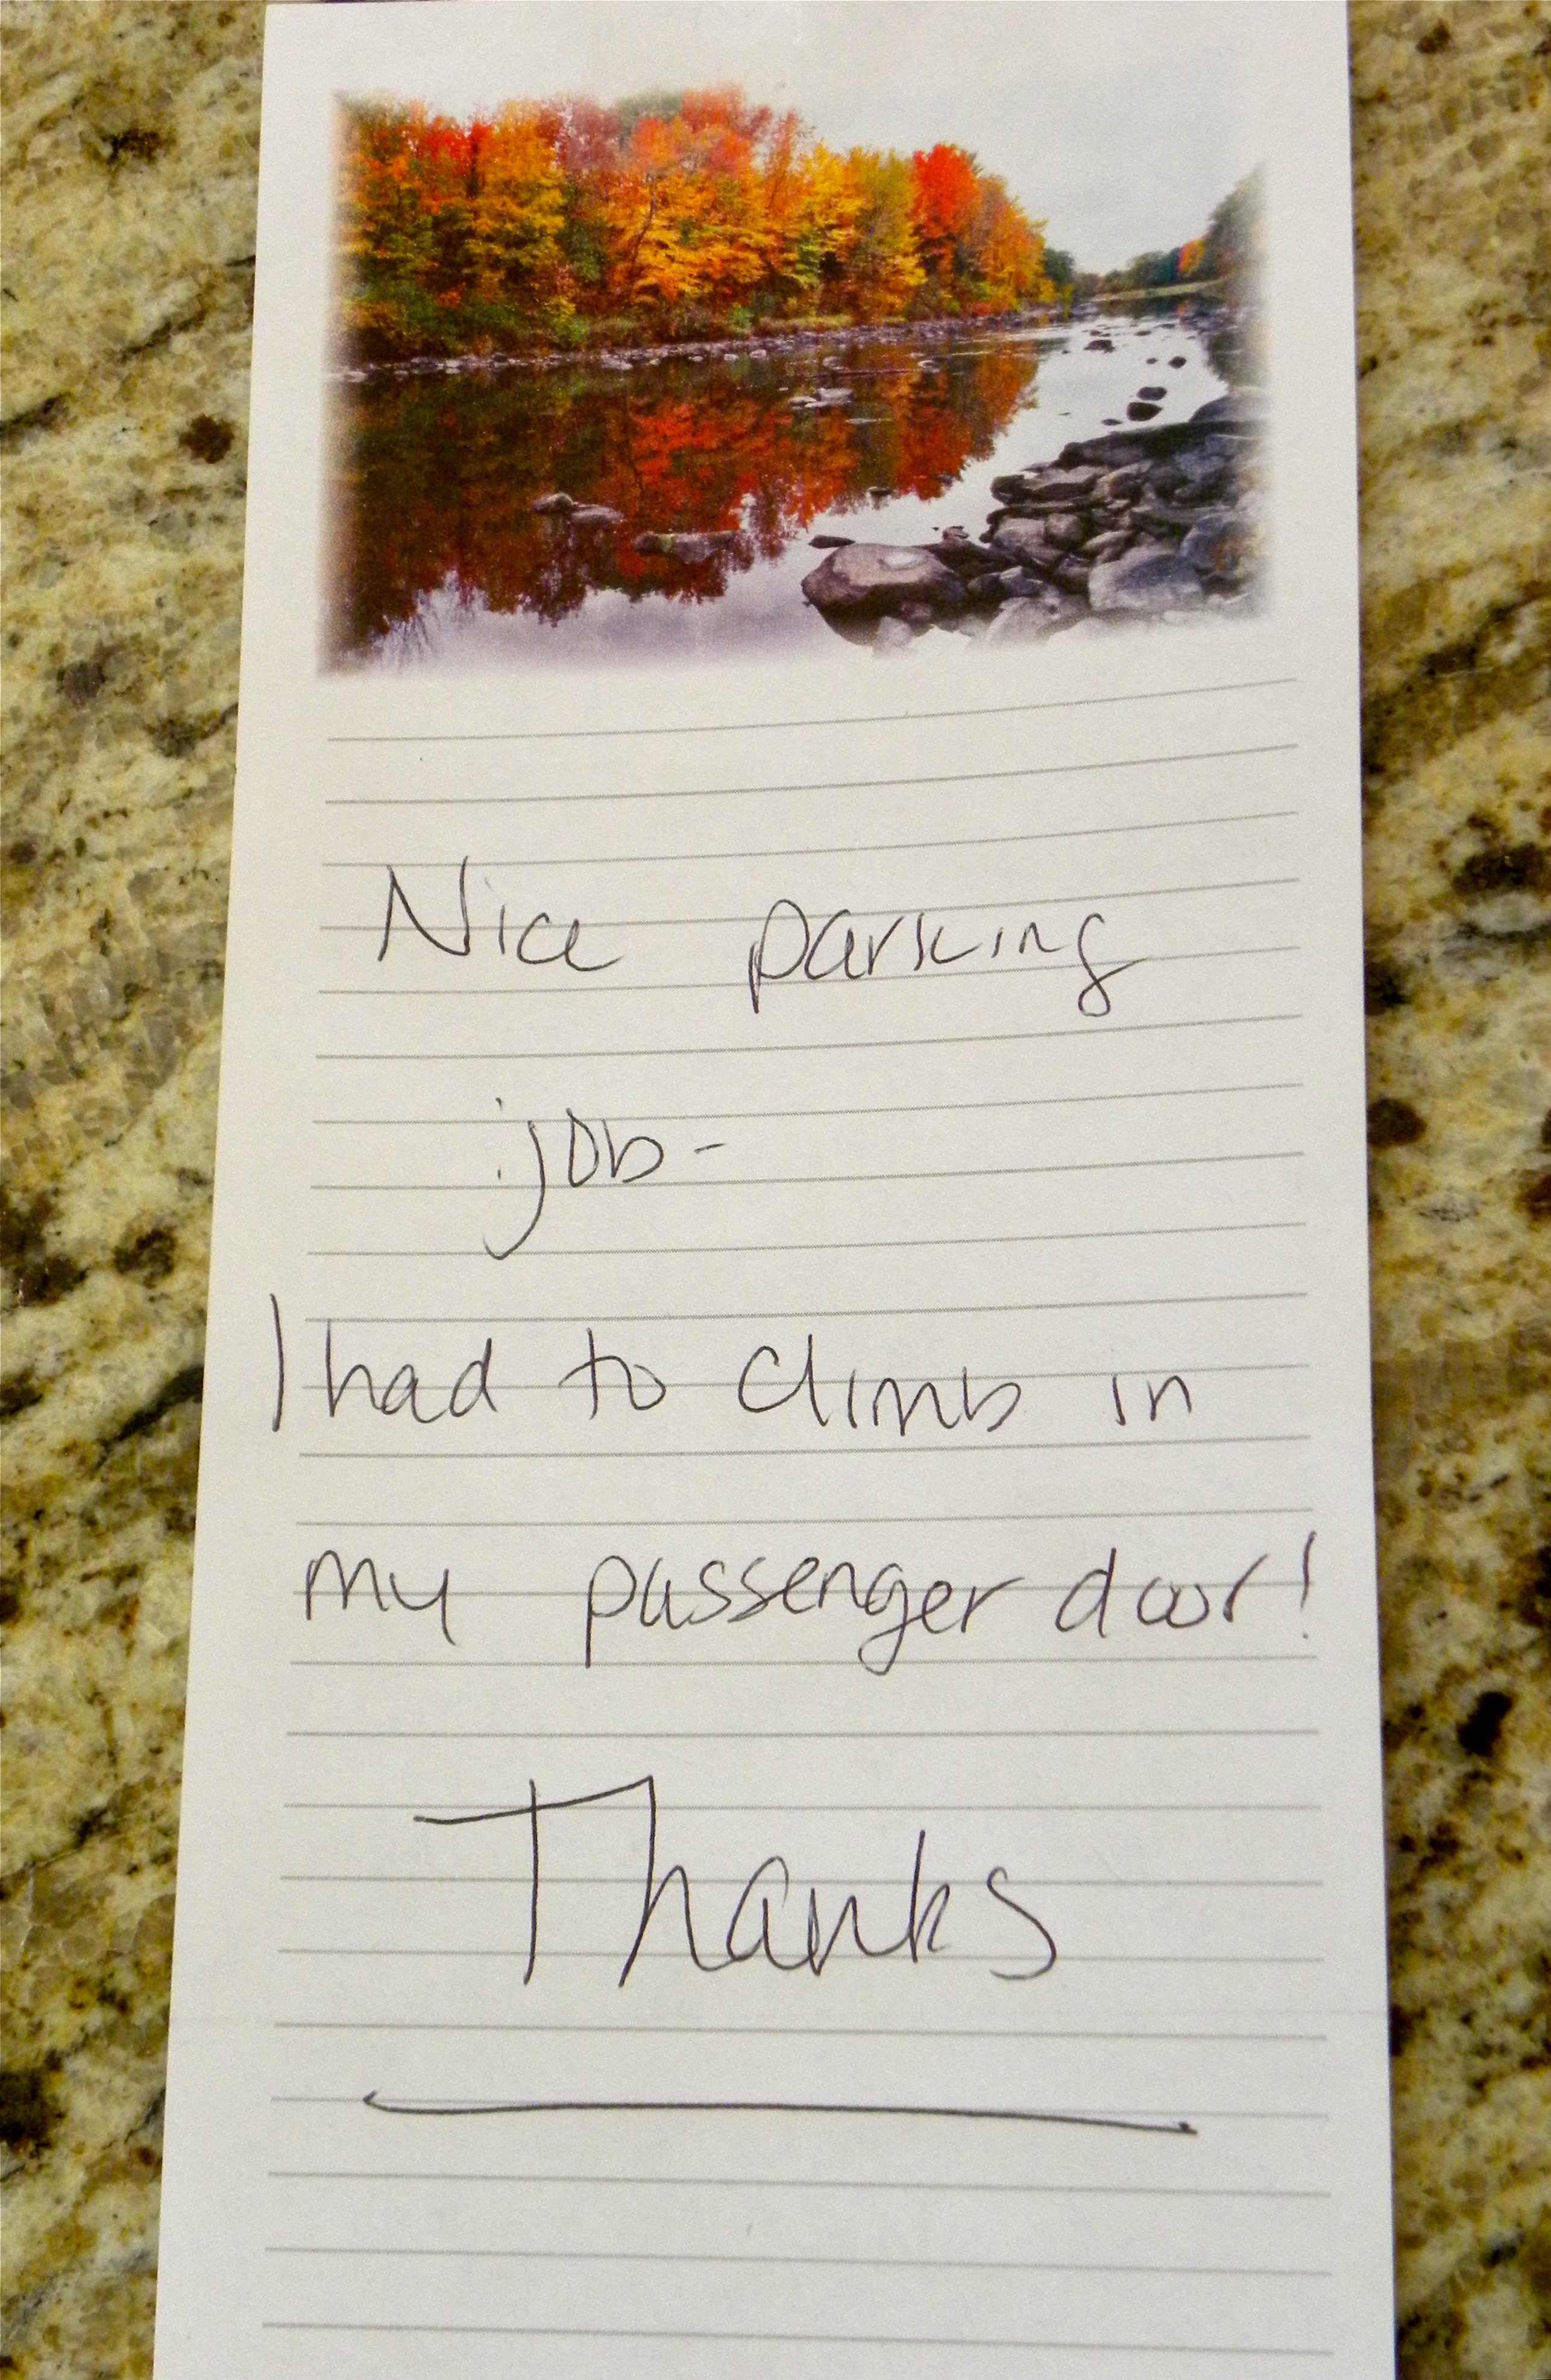 Nice parking
job-
I had to climb in
my passenger door!
Thanks